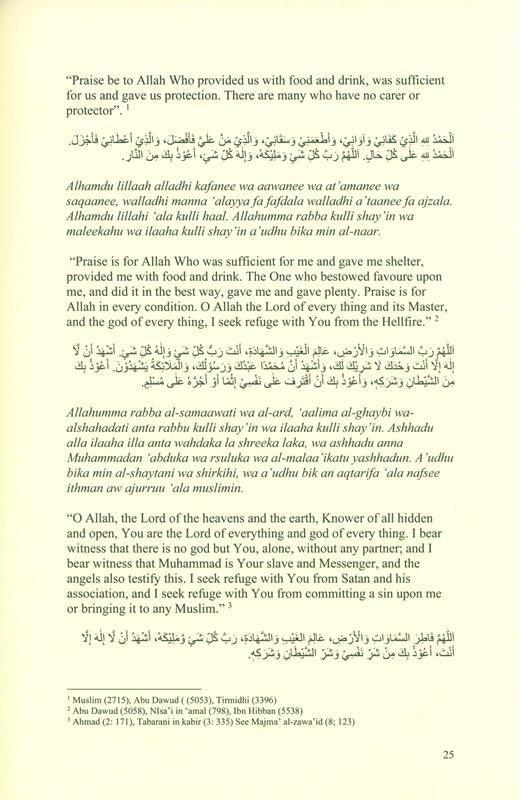 “Praise be to Allah Who provided us with food and drink, was sufficient
for us and gave us protection. There are many who have no carer or
protector”. 1
اَلْحَمْدُ لِلهِ الَّذِيْ كَفَانِيْ وَآوَانِيْ، وَأَطْعَمَنِيْ وَسَقَانِيْ، وَالَّذِيْ مَنَّ عَلَيَّ فَأَفْضَلَ، وَالَّذِيْ أَعْطَانِيْ فَأَجْزَلَ.
اَلْحَمْدُ لِلهِ عَلَى كُلِّ حَالٍ. اَللّهُمَّ رَبَّ كُلِّ شَيْءٍ وَمَلِيْكَهُ، وَإِلَهَ كُلِّ شَيْءٍ، أَعُوْذُ بِكَ مِنَ النَّارِ.
Alhamdu lillaah alladhi kafanee wa aawanee wa at’amanee wa
saqaanee, walladhi manna ‘alayya fa fafdala walladhi a’taanee fa ajzala.
Alhamdu lillahi ‘ala kulli haal. Allahumma rabba kulli shay’in wa
maleekahu wa ilaaha kulli shay’in a’udhu bika min al-naar.
“Praise is for Allah Who was sufficient for me and gave me shelter,
provided me with food and drink. The One who bestowed favoure upon
me, and did it in the best way, gave me and gave plenty. Praise is for
Allah in every condition. O Allah the Lord of every thing and its Master,
and the god of every thing, I seek refuge with You from the Hellfire.” 2
اَللّهُمَّ رَبَّ السَّمَاوَاتِ وَالْأَرْضِ، عَالِمَ الْغَيْبِ وَالشَّهَادَةِ، أَنْتَ رَبُّ كُلِّ شَيْءٍ وَإِلَهُ كُلِّ شَيْءٍ. أَشْهَدُ أَنْ لَّا
إِلَهَ إِلَّا أَنْتَ وَحْدَكَ لَا شَرِيْكَ لَكَ، وَأَشْهَدُ أَنَّ مُحَمَّدًا عَبْدُكَ وَرَسُوْلُكَ، وَالْمَلَائِكَةُ يَشْهَدُوْنَ. أَعُوْذُ بِكَ
مِنَ الشَّيْطَانِ وَشِرْكِهِ، وَأَعُوْذُ بِكَ أَنْ أَقْتَرِفَ عَلَى نَفْسِيْ إِثْمًا أَوْ أَجُرَّهُ عَلَى مُسْلِمٍ.
Allahumma rabba al-samaawati wa al-ard, ‘aalima al-ghaybi wa-
alshahadati anta rabbu kulli shay’in wa ilaaha kulli shay’in. Ashhadu
alla ilaaha illa anta wahdaka la shreeka laka, wa ashhadu anna
Muhammadan ‘abduka wa rsuluka wa al-malaa’ikatu yashhadun. A’udhu
bika min al-shaytani wa shirkihi, wa a’udhu bik an aqtarifa ‘ala nafsee
ithman aw ajurruu ‘ala muslimin.
“O Allah, the Lord of the heavens and the earth, Knower of all hidden
and open, You are the Lord of everything and god of every thing. I bear
witness that there is no god but You, alone, without any partner; and I
bear witness that Muhammad is Your slave and Messenger, and the
angels also testify this. I seek refuge with You from Satan and his
association, and I seek refuge with You from committing a sin upon me
or bringing it to any Muslim.” 3
اَللّهُمَّ فَاطِرَ السَّمَاوَاتِ وَالْأَرْضِ، عَالِمَ الْغَيْبِ وَالشَّهَادَةِ، رَبَّ كُلِّ شَيْءٍ وَّمَلِيْكَهُ، أَشْهَدُ أَنْ لَّا إِلَهَ إِلَّا
أَنْتَ، أَعُوْذُ بِكَ مِنْ شَرِّ نَفْسِيْ وَشَرِّ الشَّيْطَانِ وَشِرْكِهِ.
1 Muslim (2715), Abu Dawud ( (5053), Tirmidhi (3396)
2 Abu Dawud (5058), NIsa’i in ‘amal (798), Ibn Hibban (5538)
3 Ahmad (2: 171), Tabarani in kabir (3: 335) See Majma’ al-zawa’id (8; 123)
25